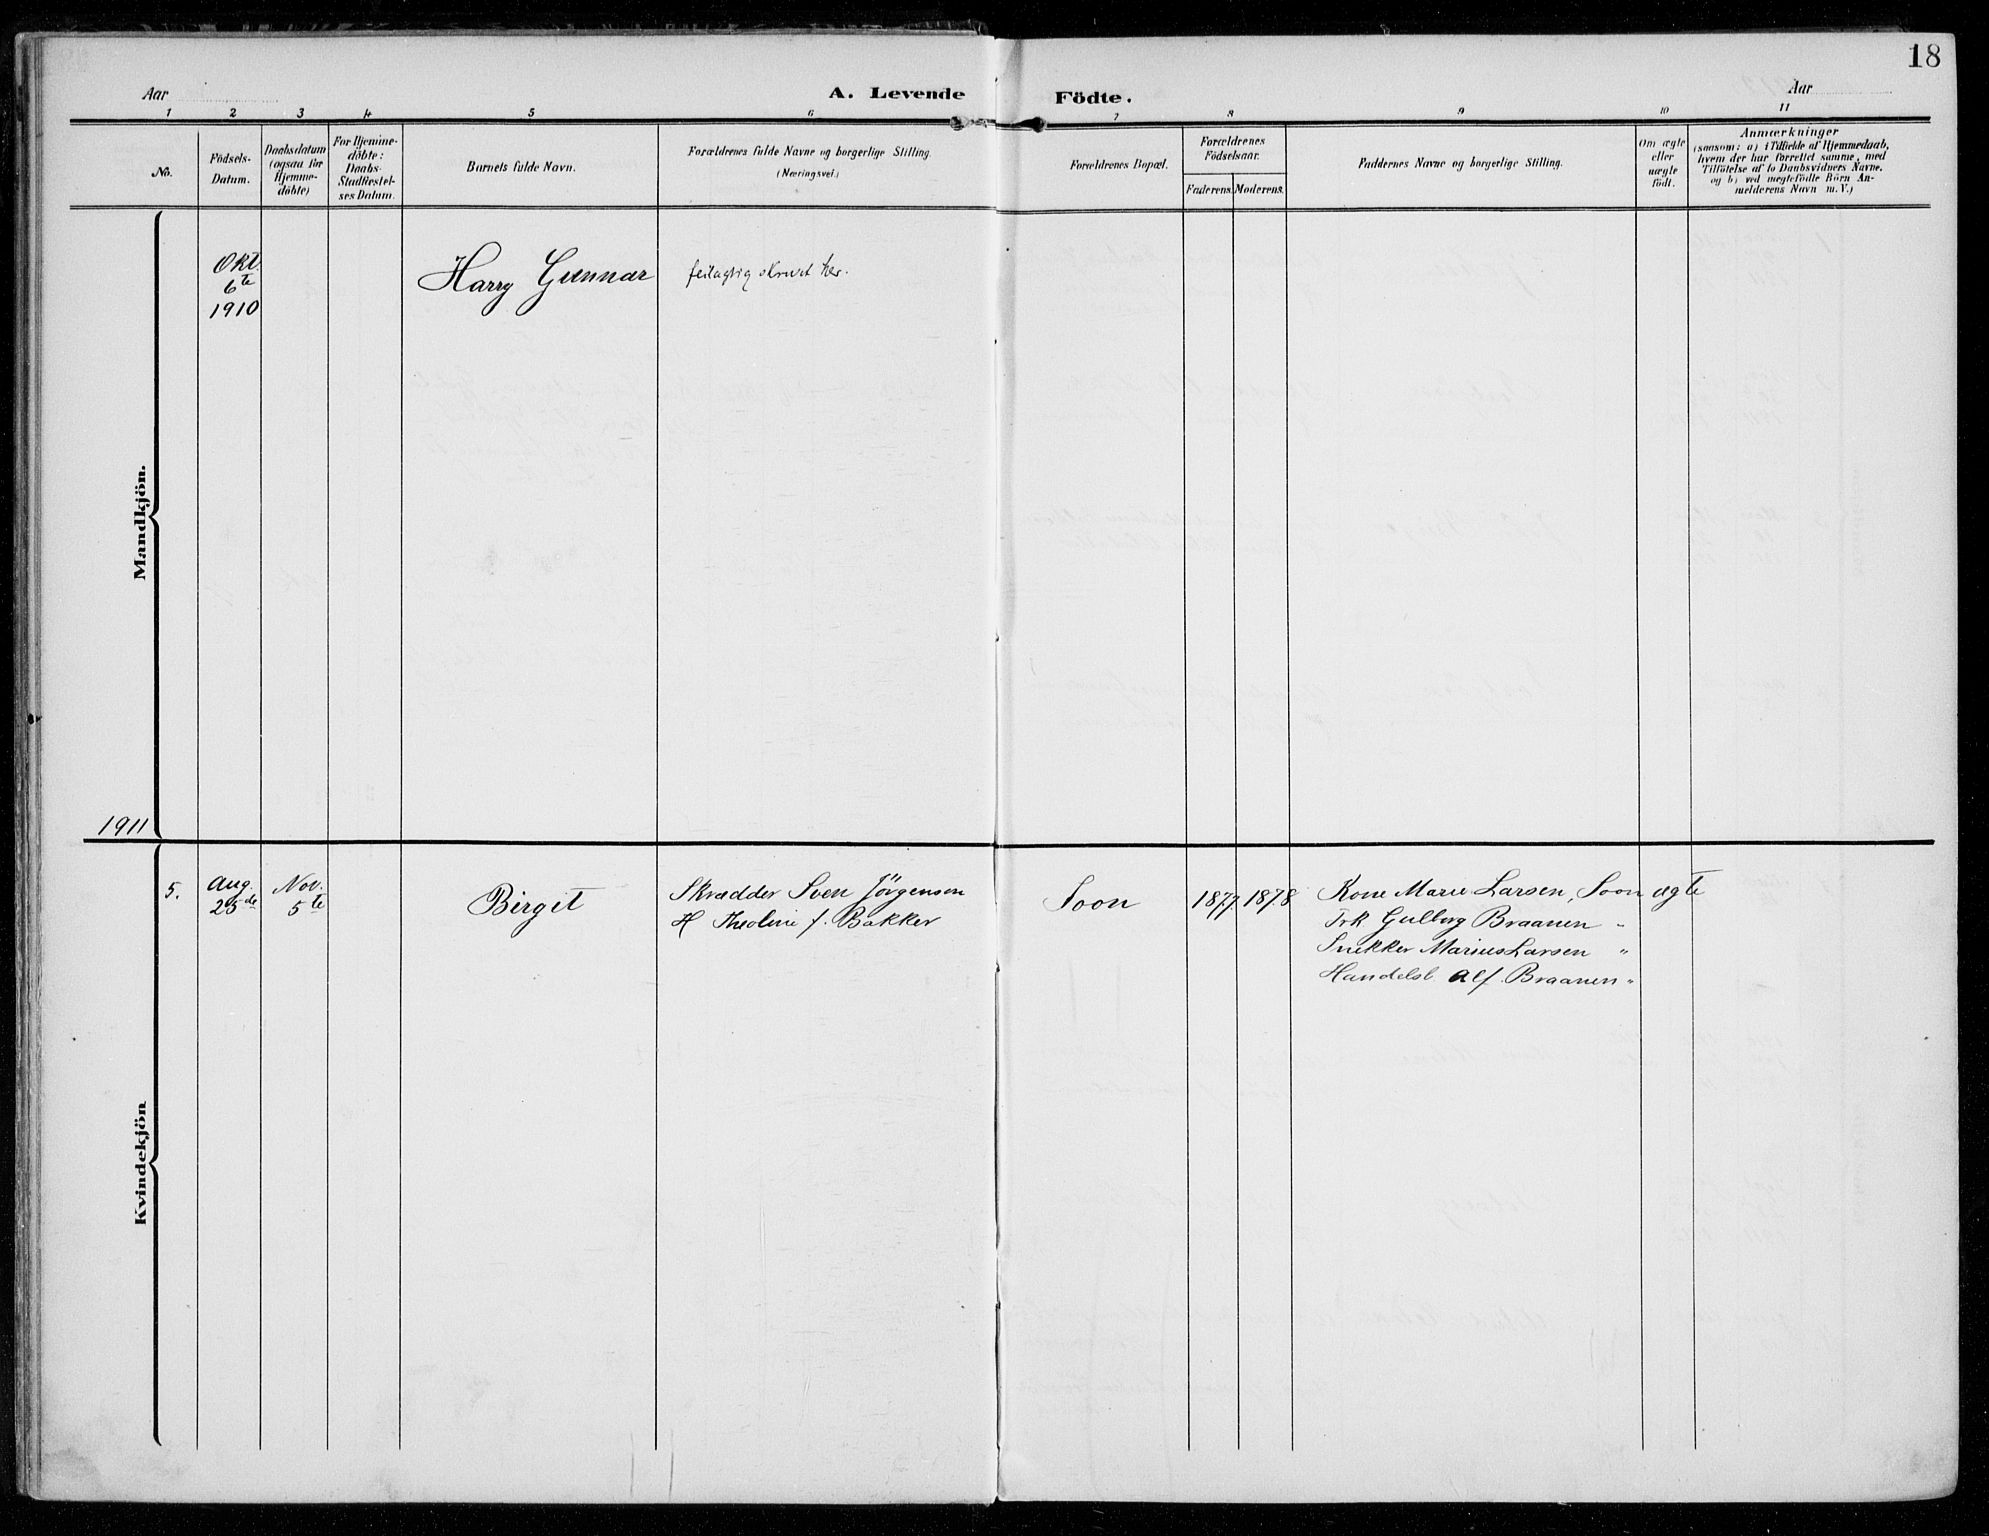 18
Aar
A. Levende Födte.
Aar
1 2 3 4 5 6 7 8 9 10 11
No.
Födsels-
Datum.
Daabsdatum
(ogsaa for
Hjemme-
döbte)
For Hjemme-
döbte:
Daabs-
Stadfestel-
ses Datum.
Barnets fulde Navn.
Forældrenes fulde Navne og borgerlige Stilling.
(Næringsvei.)
Forældrenes Bopæl.
Forældrenes
Födselsaar.
Faderens. Moderens.
Faddernes Navne og borgerlige Stilling.
Om ægte
eller
uægte
födt.
Anmærkninger
(saasom: a) i Tilfælde af Hjemmedaab,
hvem der har forrettet samme, med
Tilföielse af to Daabsvidners Navne,
og b) ved uægtefödte Börn An-
melderens Navn m. V.)
Mandkjön.
Okt.
6te
1910
Harry Gunnar
feilagtig skrevet her.
1911
Kvindekjön
5.
Aug.
25de
Nov.
5te
Birgit
Skrædder Sven Jörgensen
H Theoline f. Bakker
Soon
1877 1878
Kone Marie Larsen, Soon ægte
Frk Gulborg Braanen "
Snekker Marius Larsen "
Handelsb. Alf. Braanen "